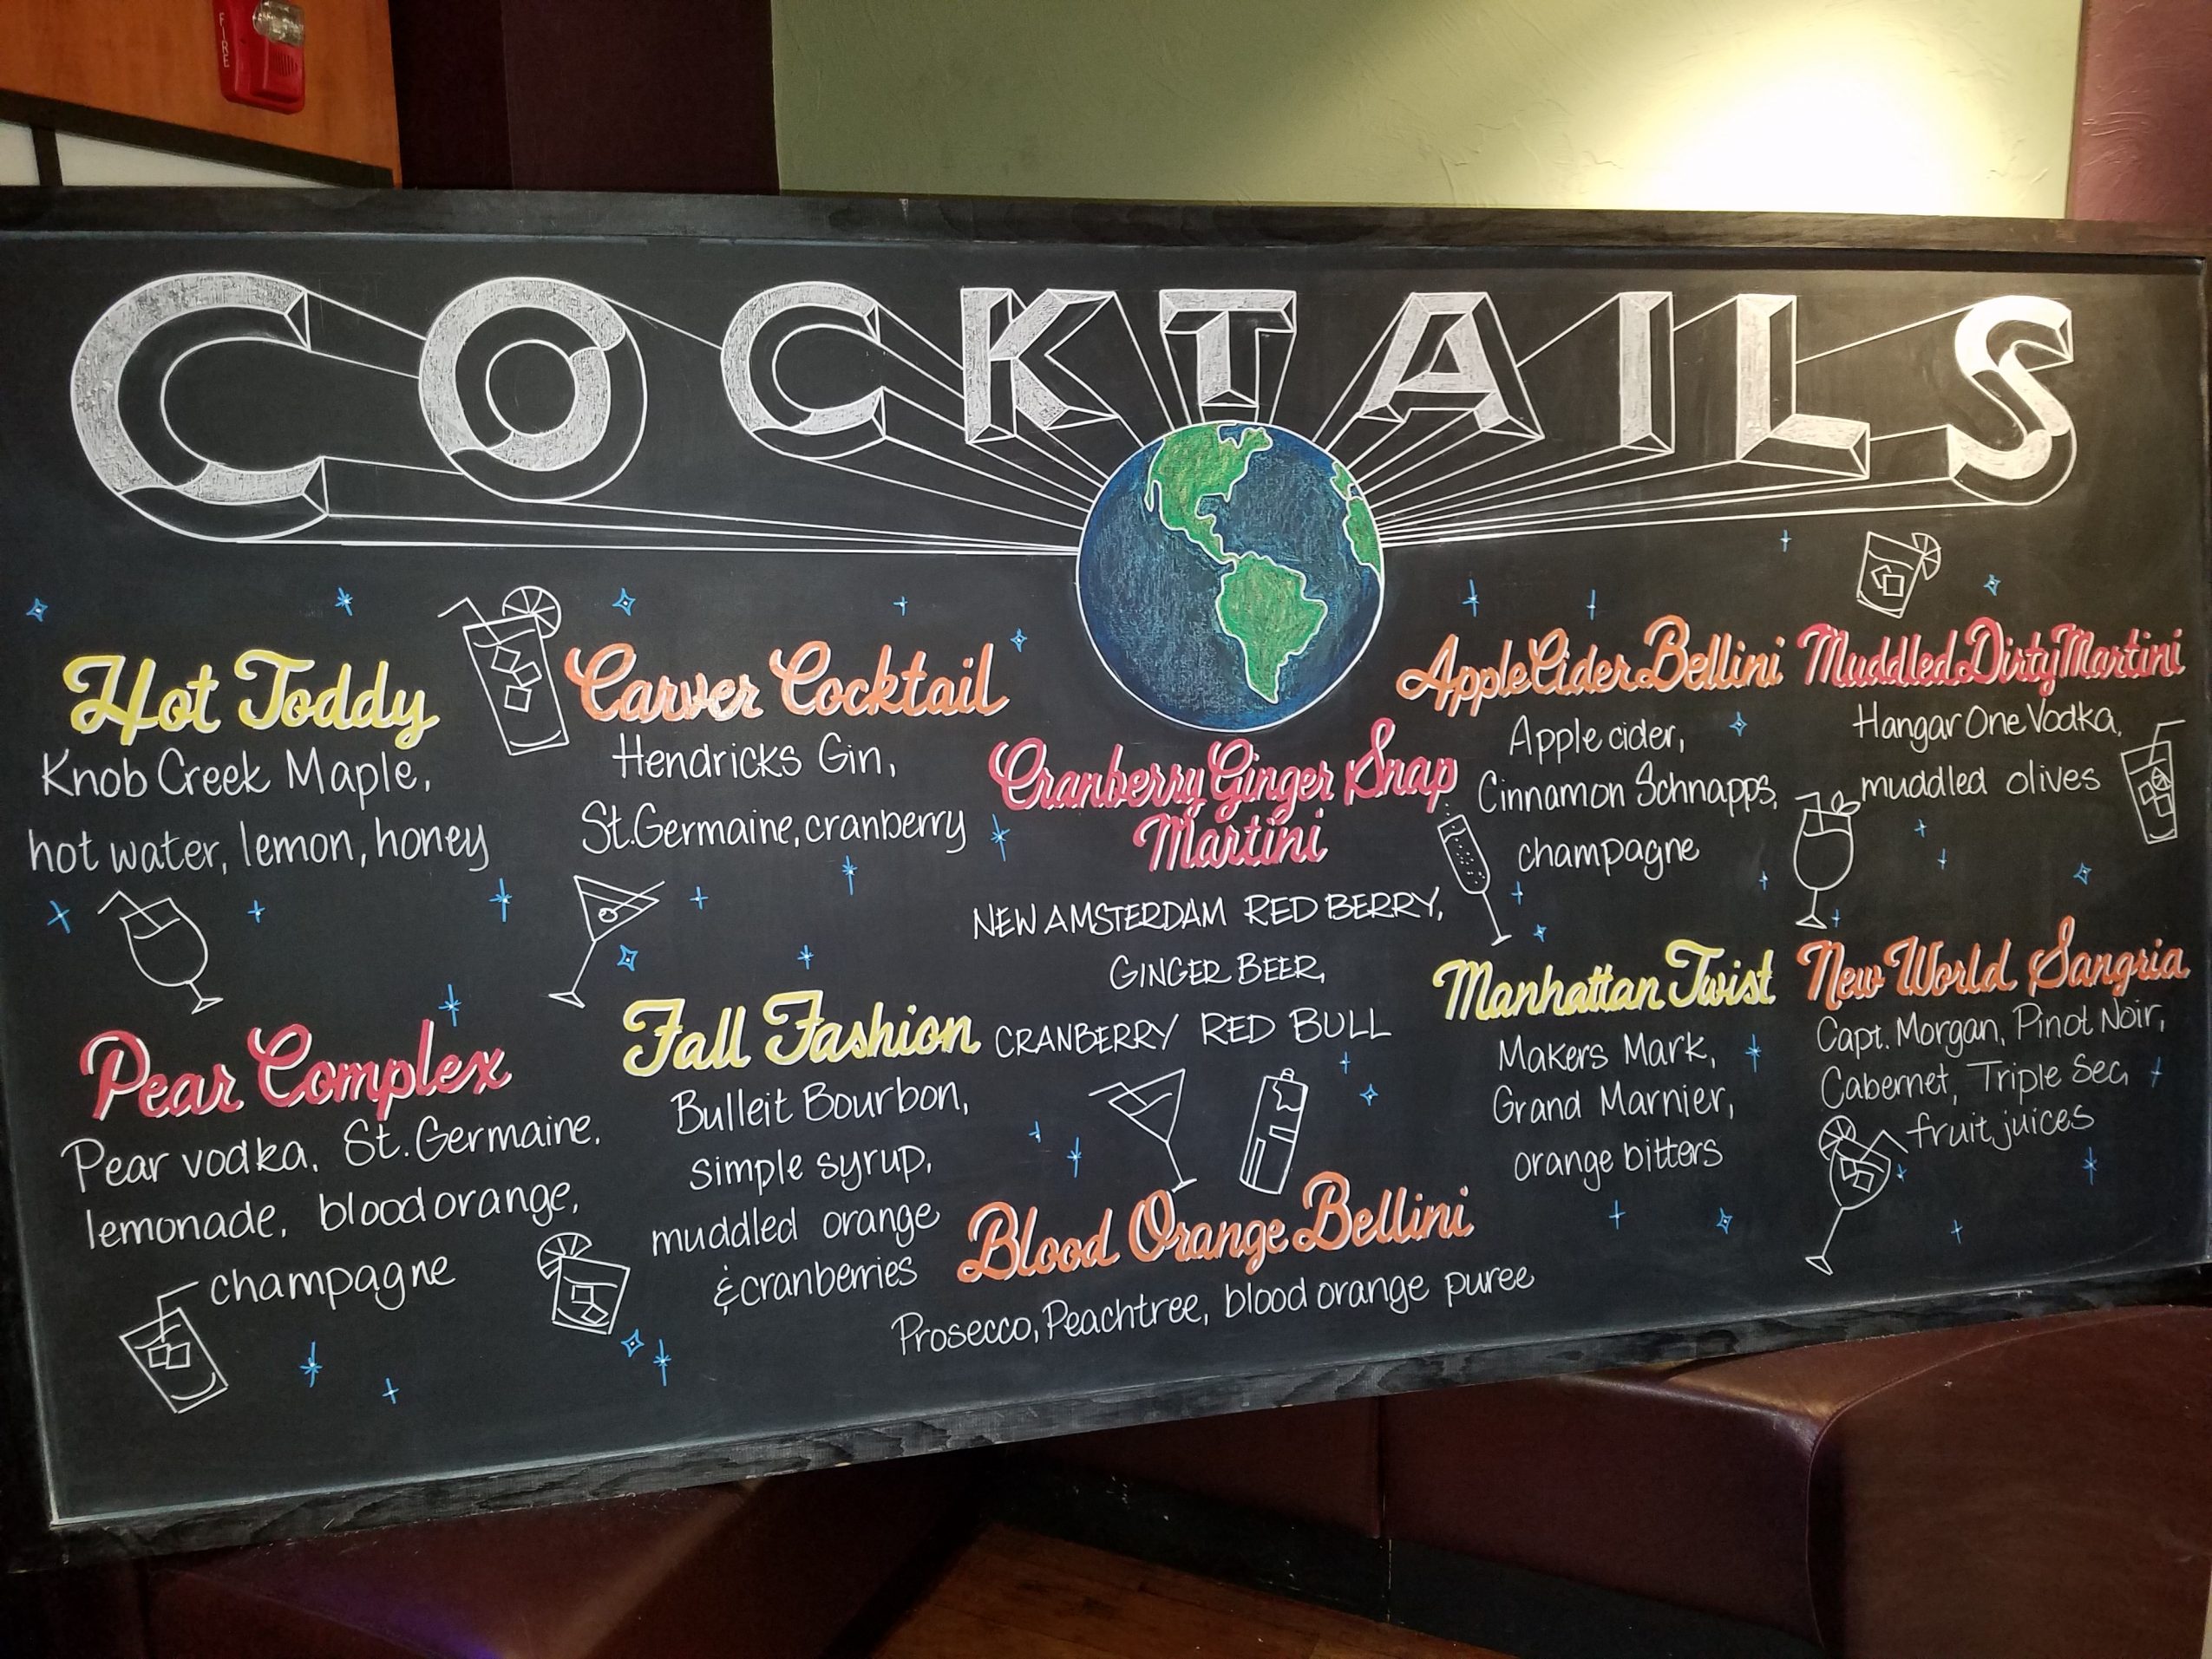 FIRE
COCKTAILS
Hot Toddy
Knob Creek Maple,
hot water, lemon, honey
Carver Cocktail
Hendricks Gin,
St. Germaine, cranberry
Pear Complex
Pear vodka, St. Germaine,
lemonade, blood orange,
champagne
Fall Fashion
Bulleit Bourbon,
simple syrup,
muddled orange
& cranberries
Cranberry Ginger Snap
Martini
NEW AMSTERDAM RED BERRY,
GINGER BEER,
CRANBERRY RED BULL
Blood Orange Bellini
Prosecco, Peachtree, blood orange puree
Apple Cider Bellini
Apple cider,
Cinnamon Schnapps,
champagne
Muddled Dirty Martini
Hangar One Vodka,
muddled olives
Manhattan Twist
Makers Mark,
Grand Marnier,
orange bitters
New World Sangria
Capt. Morgan, Pinot Noir,
Cabernet, Triple Sec,
fruit juices